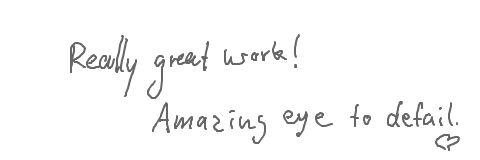 Really great work!
Amazing eye to detail.